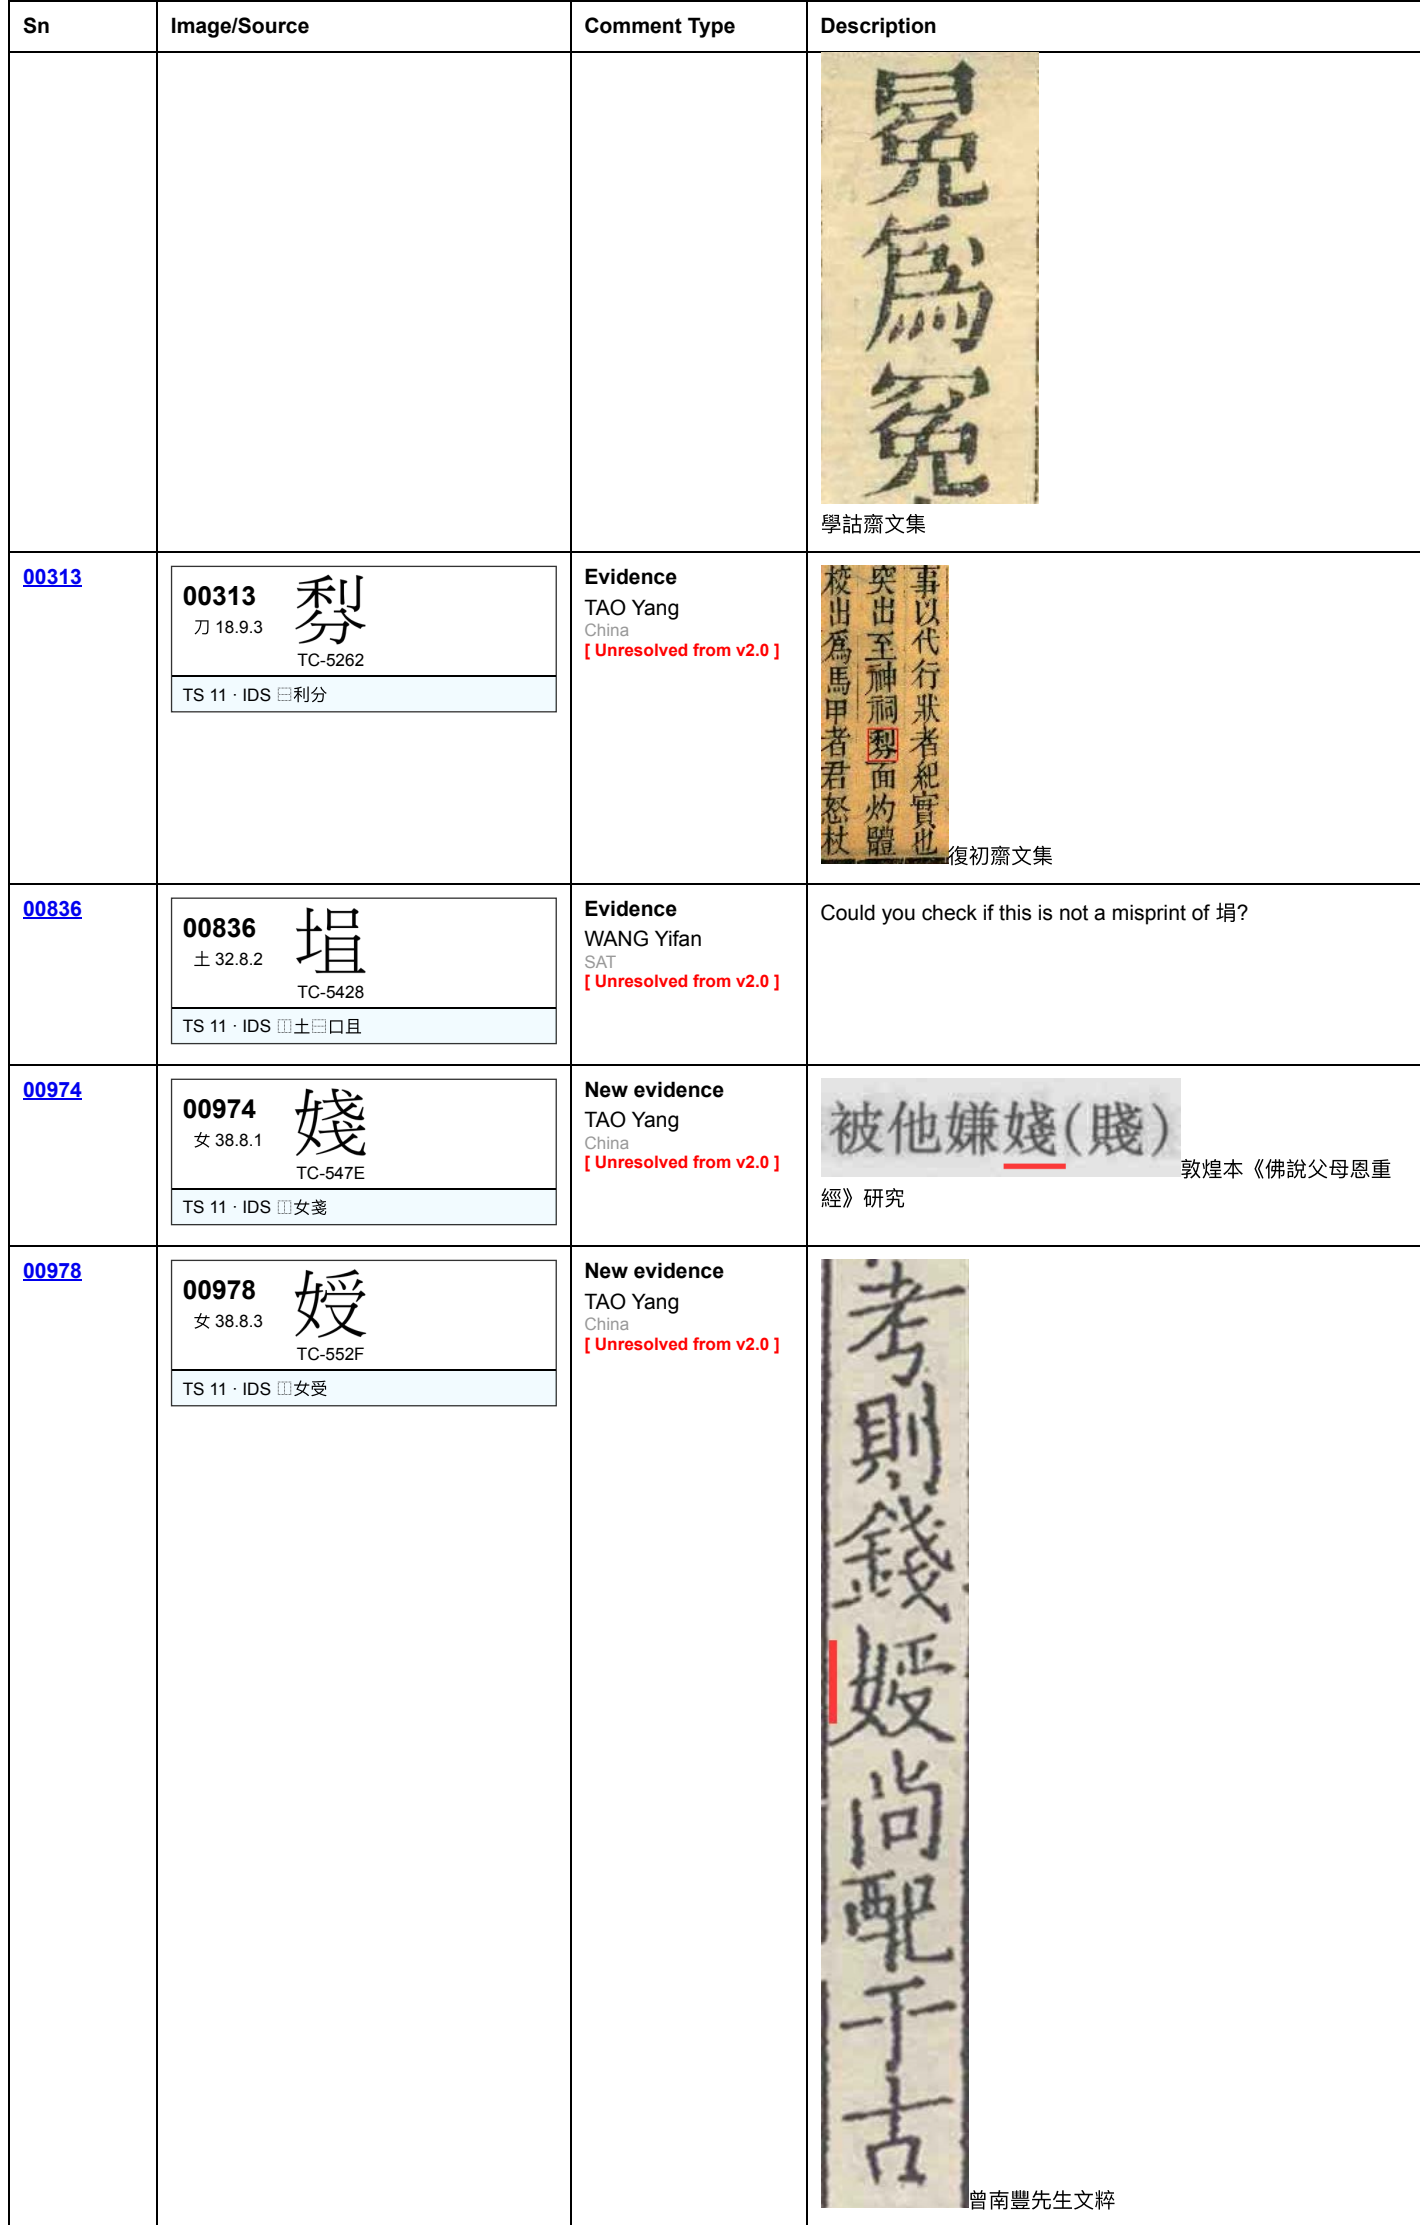 Sn Image/Source Comment Type Description
冕爲冤
學詁齋文集
00313
00313
刀 18.9.3
TC-5262
TS 11 · IDS ⿱利分
Evidence
TAO Yang
China
[ Unresolved from v2.0 ]
事以代行狀者紀實也
突出至神祠𠞱面灼體
校出爲馬甲者君怒杖
復初齋文集
00836
00836
土 32.8.2
TC-5428
TS 11 · IDS ⿰土⿱口且
Evidence
WANG Yifan
SAT
[ Unresolved from v2.0 ]
Could you check if this is not a misprint of 埍?
00974
00974
女 38.8.1
TC-547E
TS 11 · IDS ⿰女戔
New evidence
TAO Yang
China
[ Unresolved from v2.0 ]
被他嫌(賤)
敦煌本《佛說父母恩重
經》研究
00978
00978
女 38.8.3
TC-552F
TS 11 · IDS ⿰女受
New evidence
TAO Yang
China
[ Unresolved from v2.0 ]
考則錢尚配千古
曾南豐先生文粹